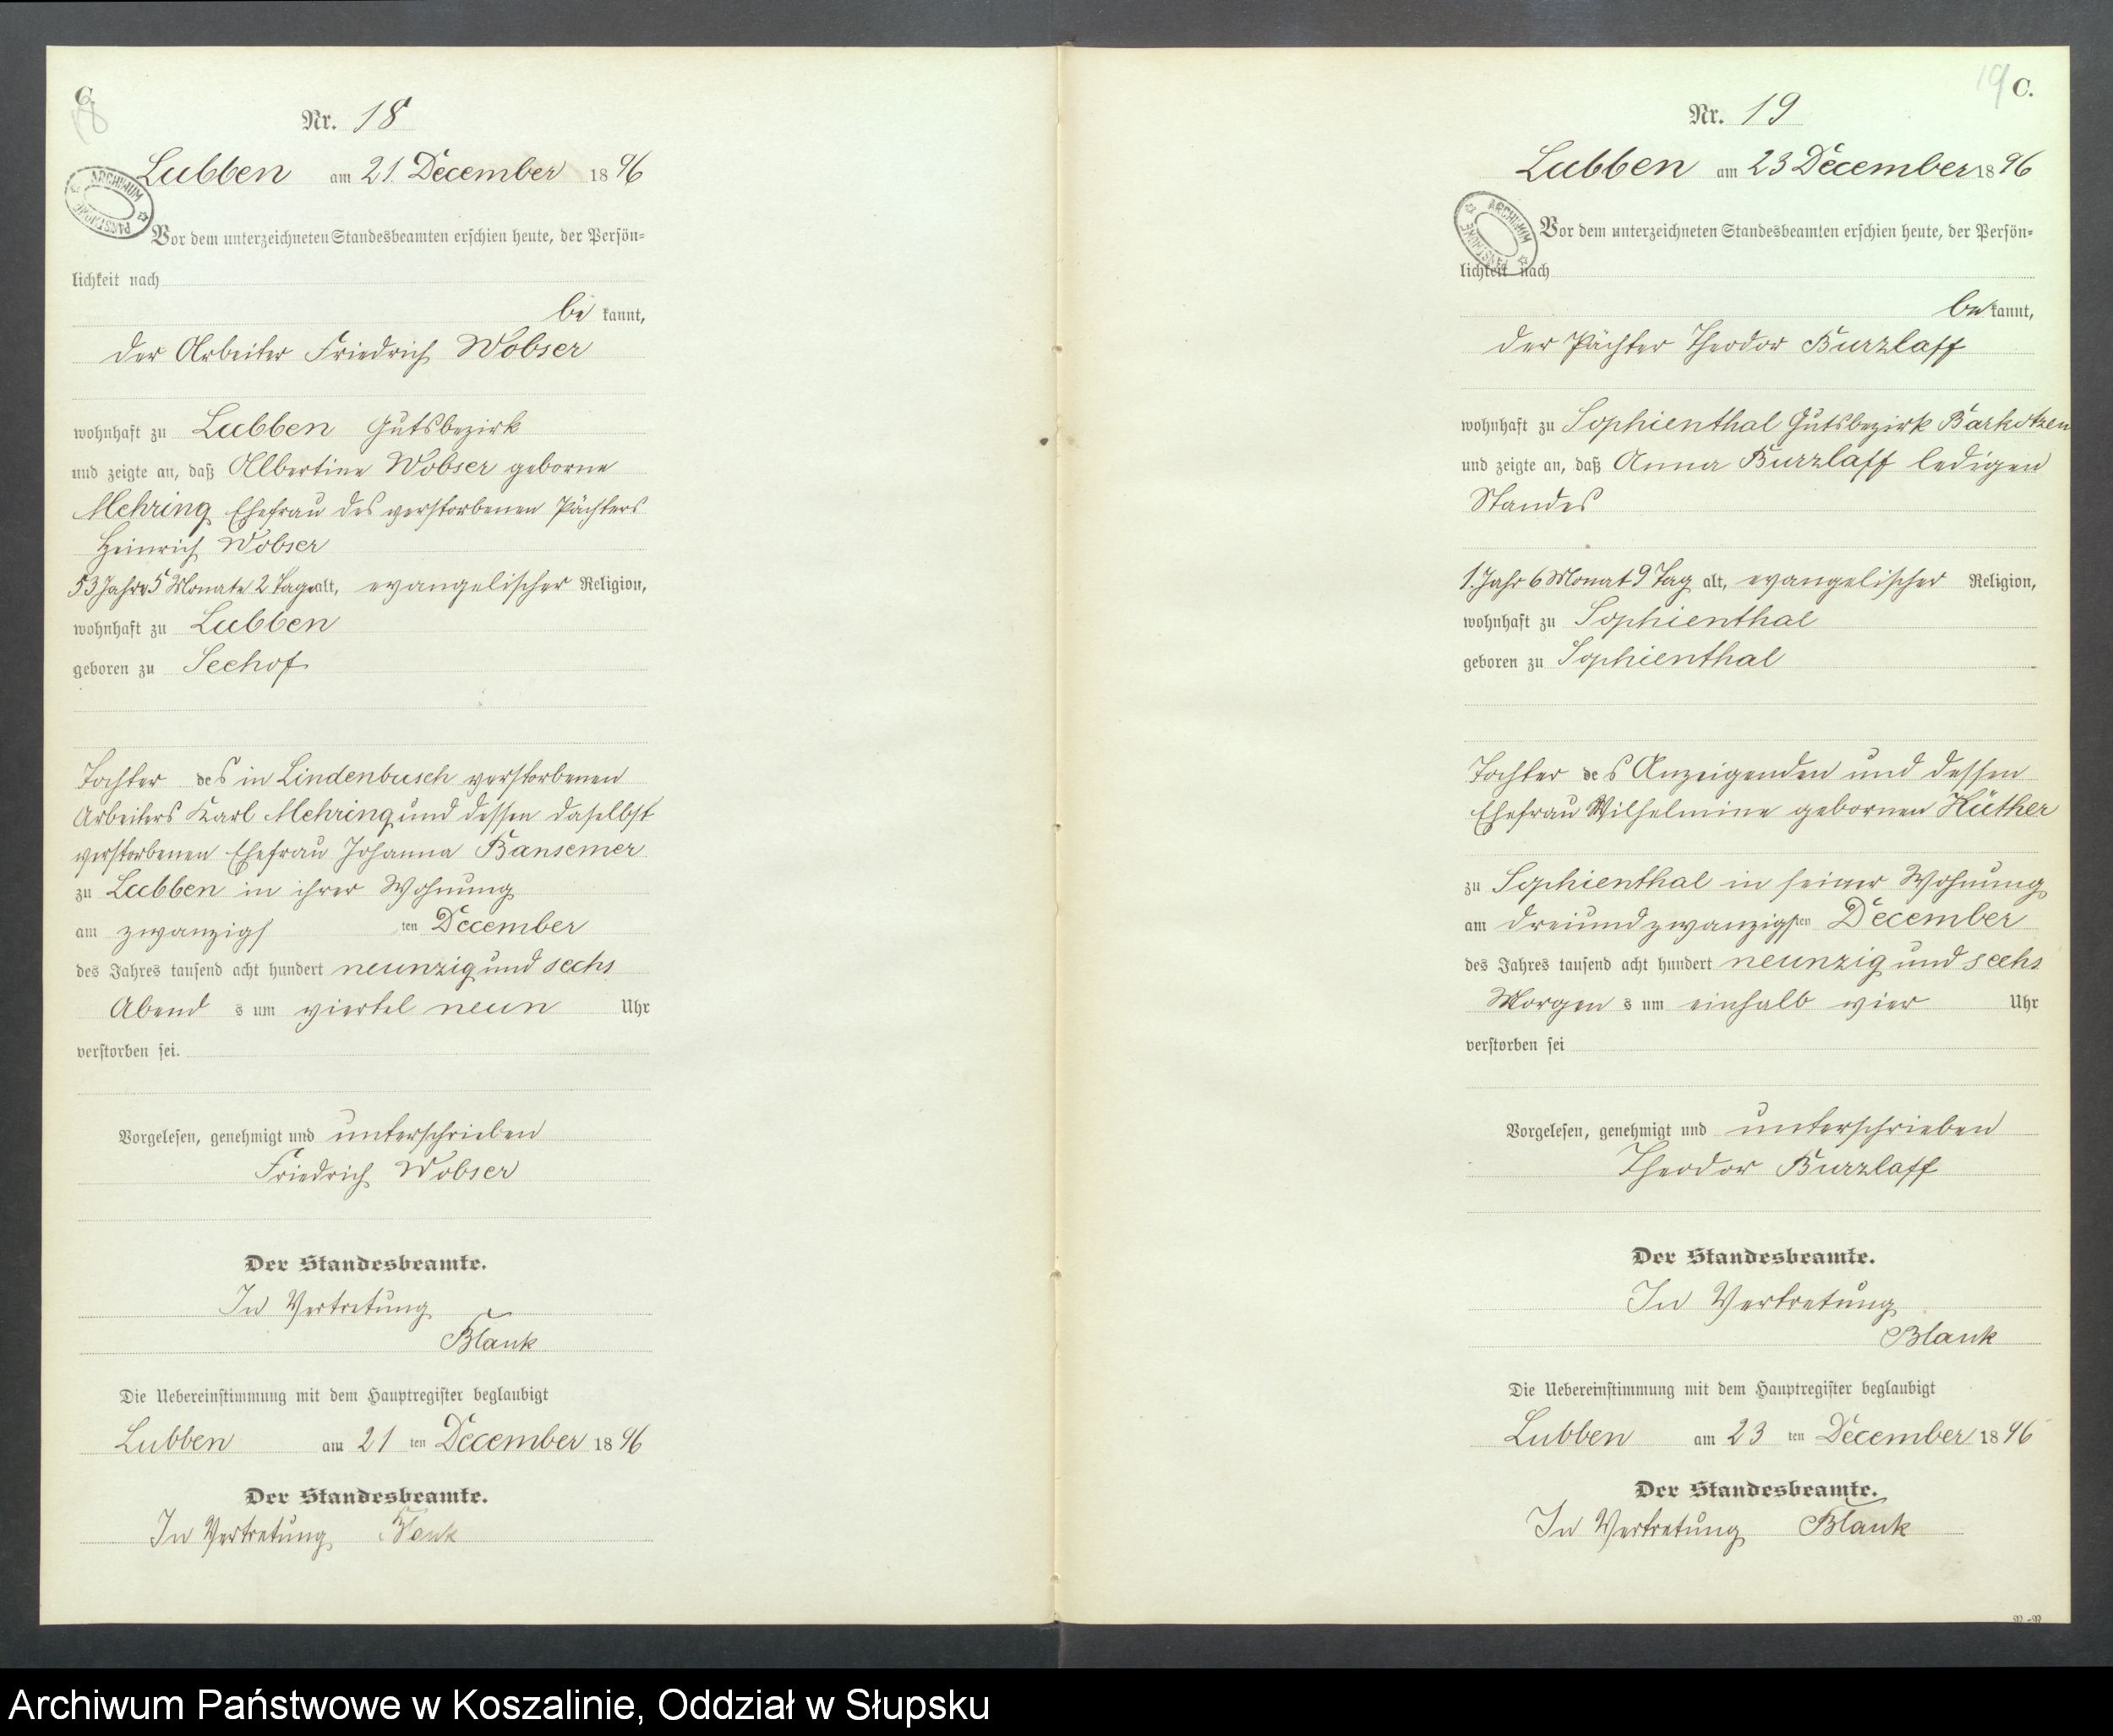 C.
18
Nr. 18
Lubben am 21. December 1896
ARCHIWUM PAŃSTWOWE
Vor dem unterzeichneten Standesbeamten erschien heute, der Persön-
lichkeit nach
be kannt,
der Arbeiter Friedrich Wobser
wohnhaft zu Lubben Gutsbezirk
und zeigte an, daß Albertine Wobser geborne
Mehring Ehefrau des verstorbenen Pächters
Heinrich Wobser
53 Jahre 5 Monate 2 Tage alt, evangelischer Religion,
wohnhaft zu Lubben
geboren zu Seehof
Tochter des in Lindenbusch verstorbenen
Arbeiters Karl Mehring und dessen daselbst
verstorbenen Ehefrau Johanna Bansemer
zu Lubben in ihrer Wohnung
am zwanzigs ten December
des Jahres tausend acht hundert neunzig und sechs
Abend s um viertel neun Uhr
verstorben sei.
Vorgelesen, genehmigt und unterschrieben
Friedrich Wobser
Der Standesbeamte.
In Vertretung
Blank
Die Uebereinstimmung mit dem Hauptregister beglaubigt
Lubben am 21 ten December 1896
Der Standesbeamte.
In Vertretung Blank
19 C.
Nr. 19
Lubben am 23 December 1896
ARCHIWUM PAŃSTWOWE
Vor dem unterzeichneten Standesbeamten erschien heute, der Persön-
lichkeit nach
be kannt,
der Pächter Theodor Burzlaff
wohnhaft zu Sophienthal Gutsbezirk Barkotzen
und zeigte an, daß Anna Burzlaff ledigen
Standes
1 Jahr 6 Monat 9 Tag alt, evangelischer Religion,
wohnhaft zu Sophienthal
geboren zu Sophienthal
Tochter des Anzeigenden und dessen
Ehefrau Wilhelmine gebornen Küther
zu Sophienthal in seiner Wohnung
am dreiundzwanzigsten December
des Jahres tausend acht hundert neunzig und sechs
Morgen s um einhalb vier Uhr
verstorben sei
Vorgelesen, genehmigt und unterschrieben
Theodor Burzlaff
Der Standesbeamte.
In Vertretung
Blank
Die Uebereinstimmung mit dem Hauptregister beglaubigt
Lubben am 23 ten December 1896
Der Standesbeamte.
In Vertretung Blank
Archiwum Państwowe w Koszalinie, Oddział w Słupsku